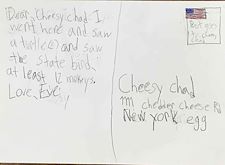 Dear Cheesy chad I
went here and saw
a turtle(s) and saw
the state bird.
at least 12 monkeys.
Love, Eve
Cheesy chad
1111 cheddar cheese Rd
New york egg